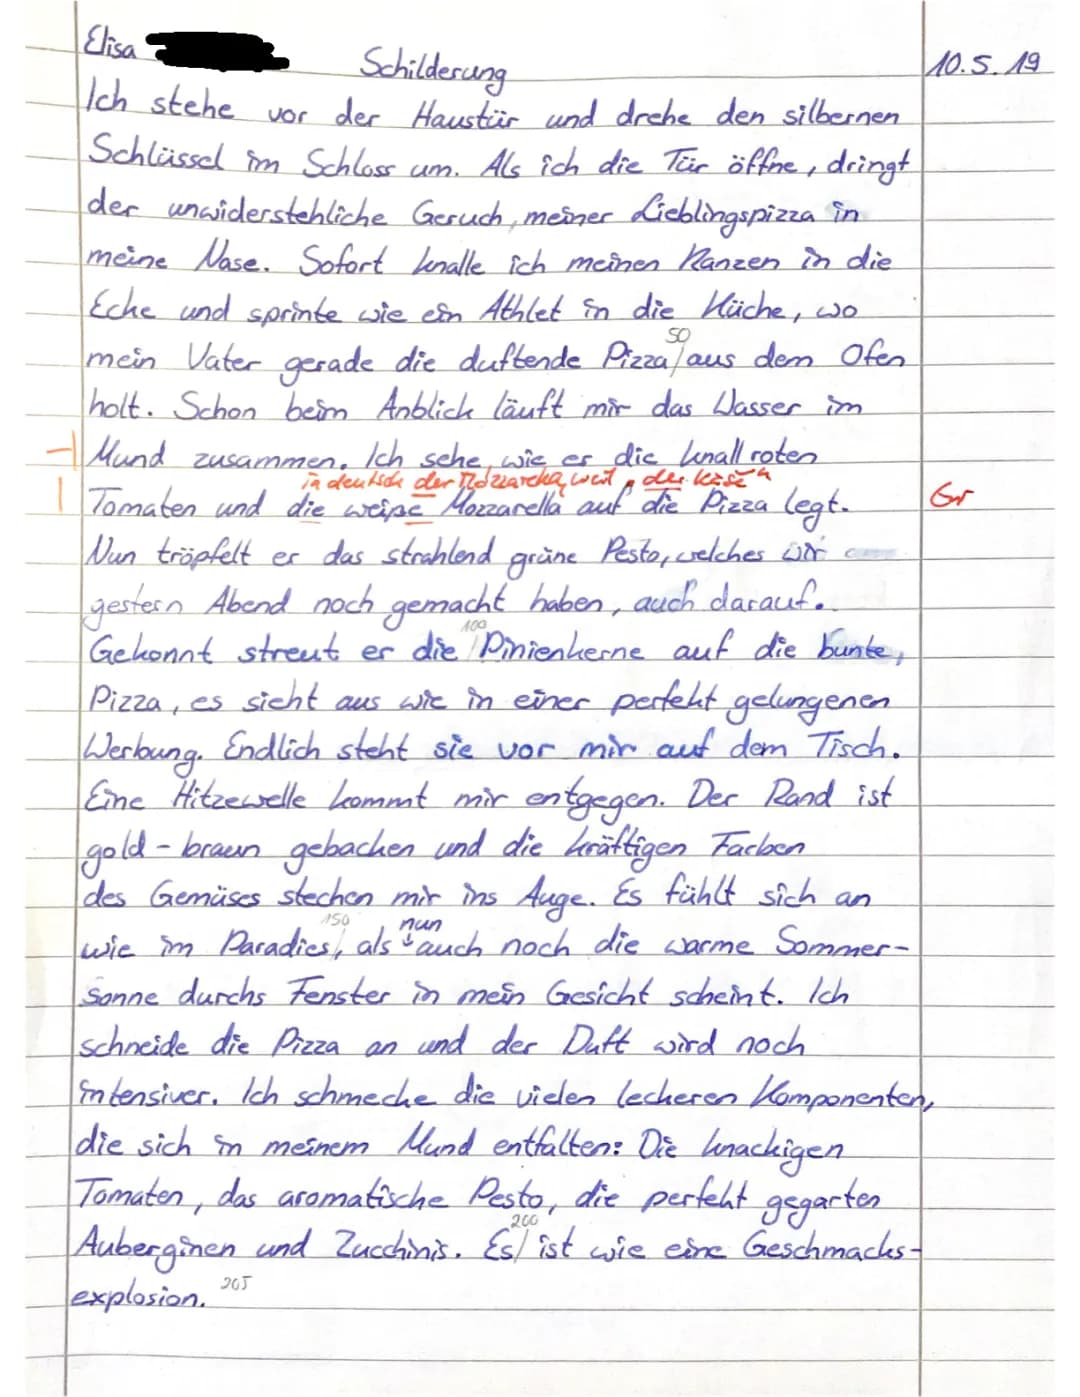 Elisa
Schilderung
10.5.19
Ich stehe vor der Haustür und drehe den silbernen
Schlüssel im Schloss um. Als ich die Tür öffne, dringt
der unwiderstehliche Geruch meiner Lieblingspizza in
meine Nase. Sofort knalle ich meinen Ranzen in die
Ecke und sprinte wie ein Athlet in die Küche, wo
50
mein Vater gerade die duftende Pizza/aus dem Ofen
holt. Schon beim Anblick läuft mir das Wasser im
Mund zusammen. Ich sehe, wie er die knallroten
in deutsch der Mozzarella, weil „der Käse"
Tomaten und die weiße Mozzarella auf die Pizza legt.
Gr
Nun tröpfelt er das strahlend grüne Pesto, welches wir
gestern Abend noch gemacht haben, auch darauf.
100
Gekonnt streut er die/Pinienkerne auf die bunte,
Pizza, es sieht aus wie in einer perfekt gelungenen
Werbung. Endlich steht sie vor mir auf dem Tisch.
Eine Hitzewelle kommt mir entgegen. Der Rand ist
gold-braun gebacken und die kräftigen Farben
des Gemüses stechen mir ins Auge. Es fühlt sich an
150 nun
wie im Paradies/, als auch noch die warme Sommer-
sonne durchs Fenster in mein Gesicht scheint. Ich
schneide die Pizza an und der Duft wird noch
intensiver. Ich schmecke die vielen leckeren Komponenten,
die sich in meinem Mund entfalten: Die knackigen
Tomaten, das aromatische Pesto, die perfekt gegarten
200
Auberginen und Zucchinis. Es/ist wie eine Geschmacks-
explosion. 205